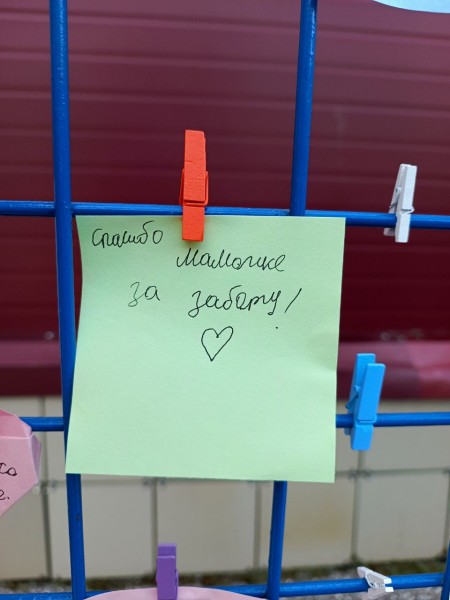 Спасибо
Мамочке
за заботу!